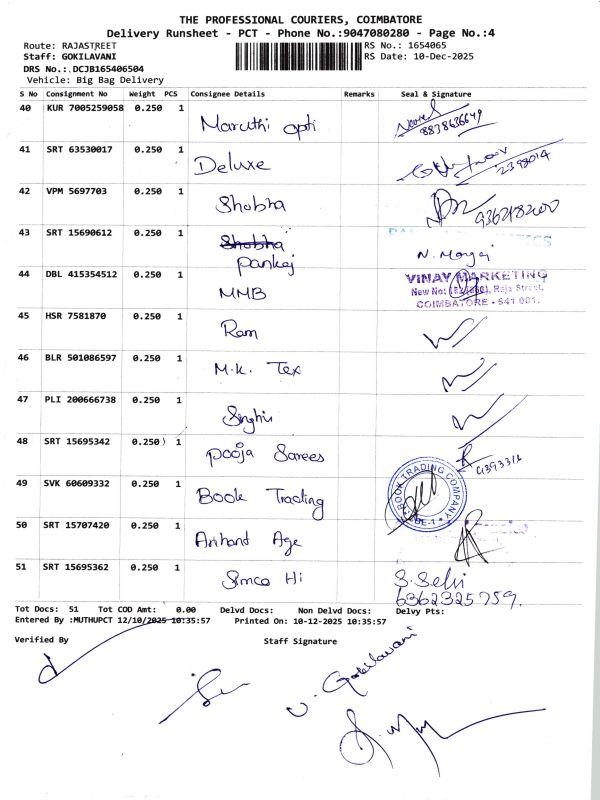 THE PROFESSIONAL COURIERS, COIMBATORE
Delivery Runsheet - PCT - Phone No.:9047080280 - Page No.:4
Route: RAJASTREET RS No.: 1654065
Staff: GOKILAVANI RS Date: 10-Dec-2025
DRS No.:.DCJB165406504
Vehicle: Big Bag Delivery
S No Consignment No Weight PCS Consignee Details Remarks Seal & Signature
40 KUR 7005259058 0.250 1 Maruthi opti
8838636649
41 SRT 63530017 0.250 1 Deluxe
2398014
42 VPM 5697703 0.250 1 Shobha
43 SRT 15690612 0.250 1 Shobha
Pankaj
44 DBL 415354512 0.250 1 MMB
VINAY MARKETING
Raja Street,
COIMBATORE - 641 001.
45 HSR 7581870 0.250 1 Ram
46 BLR 501086597 0.250 1 M.K. Tex
47 PLI 200666738 0.250 1 Singhvi
48 SRT 15695342 0.250 1 Pooja Sarees
49 SVK 60609332 0.250 1 Book Trading
BOOK TRADING COMPANY
50 SRT 15707420 0.250 1 Arihant Age
51 SRT 15695362 0.250 1 Simco Hi
S. Selvi
6362325759.
Tot Docs: 51 Tot COD Amt: 0.00 Delvd Docs: Non Delvd Docs: Delvy Pts:
Entered By :MUTHUPCT 12/10/2025 10:35:57 Printed On: 10-12-2025 10:35:57
Verified By Staff Signature
V. Gokilavani